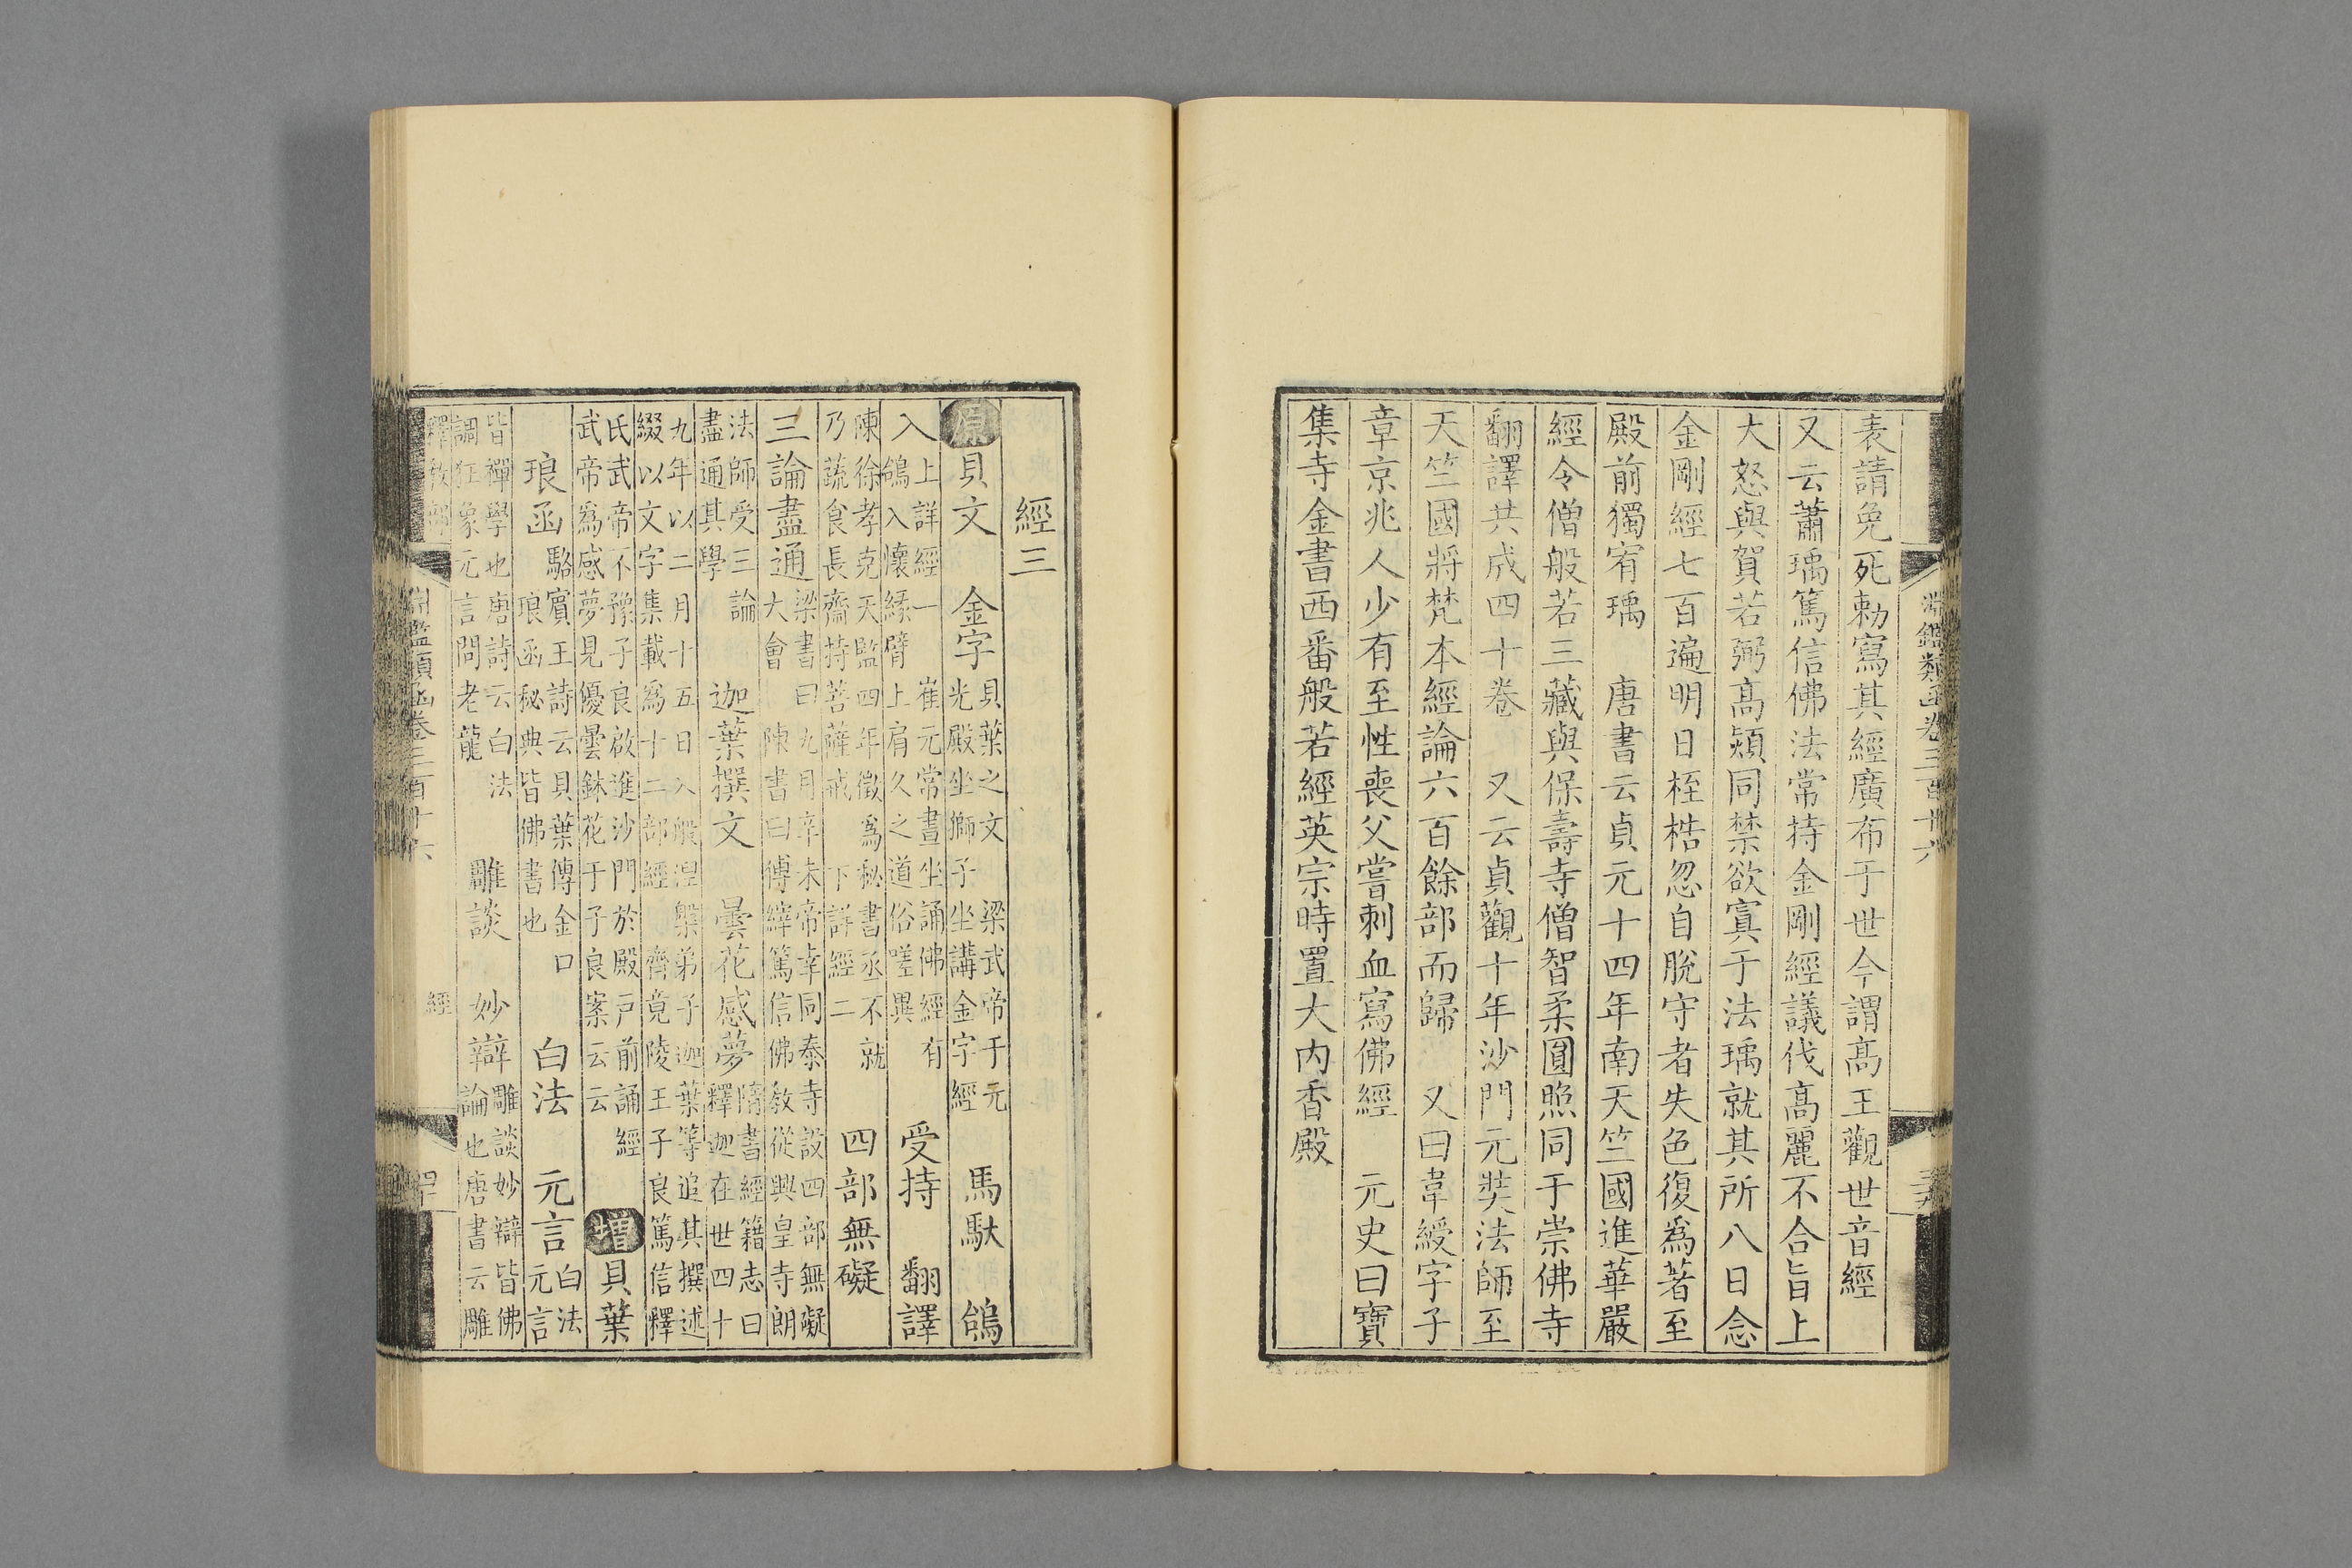 淵鑑類函卷三百十六
表請免死勅寫其經廣布于世今謂高王觀世音經
又云蕭瑀篤信佛法常持金剛經議伐高麗不合旨上
大怒與賀若弼高熲同禁欲寘于法瑀就其所八日念
金剛經七百遍明日桎梏忽自脫守者失色復爲著至
殿前獨宥瑀　唐書云貞元十四年南天竺國進華嚴
經令僧般若三藏與保壽寺僧智柔圓照同于崇佛寺
翻譯共成四十卷　又云貞觀十年沙門元奘法師至
天竺國將梵本經論六百餘部而歸　又曰韋綬字子
章京兆人少有至性喪父嘗刺血寫佛經　元史曰寶
集寺金書西番般若經英宗時置大内香殿
經三
原貝文　金字貝葉之文　梁武帝于元光殿坐獅子坐講金字經　馬馱　鴿
入上詳經一　鴿入懷緣臂崔元常晝坐誦佛經有上肩久之道俗嗟異　受持　翻譯
陳徐孝克天監四年徵爲秘書丞不就乃蔬食長齋持菩薩戒　下詳經二　四部無礙
三論盡通梁書曰九月辛未帝幸同泰寺設四部無礙大會　陳書曰傅縡篤信佛教從興皇寺朗
法師受三論盡通其學　迦葉撰文　曇花感夢隋書經籍志曰釋迦在世四十
九年以二月十五日入般涅槃弟子迦葉等追其撰述綴以文字集載爲十二部經　齊竟陵王子良篤信釋
氏武帝不豫子良啟進沙門於殿戸前誦經武帝爲感夢見優曇鉢花于子良案云云　增貝葉
琅函駱賓王詩云貝葉傳金口　琅函秘典皆佛書也　白法　元言白法元言
皆禪學也唐詩云白法調狂象元言問老龍　雕談　妙辯雕談妙辯皆佛論也唐書云雕
釋教部　淵鑑類函卷三百十六　經